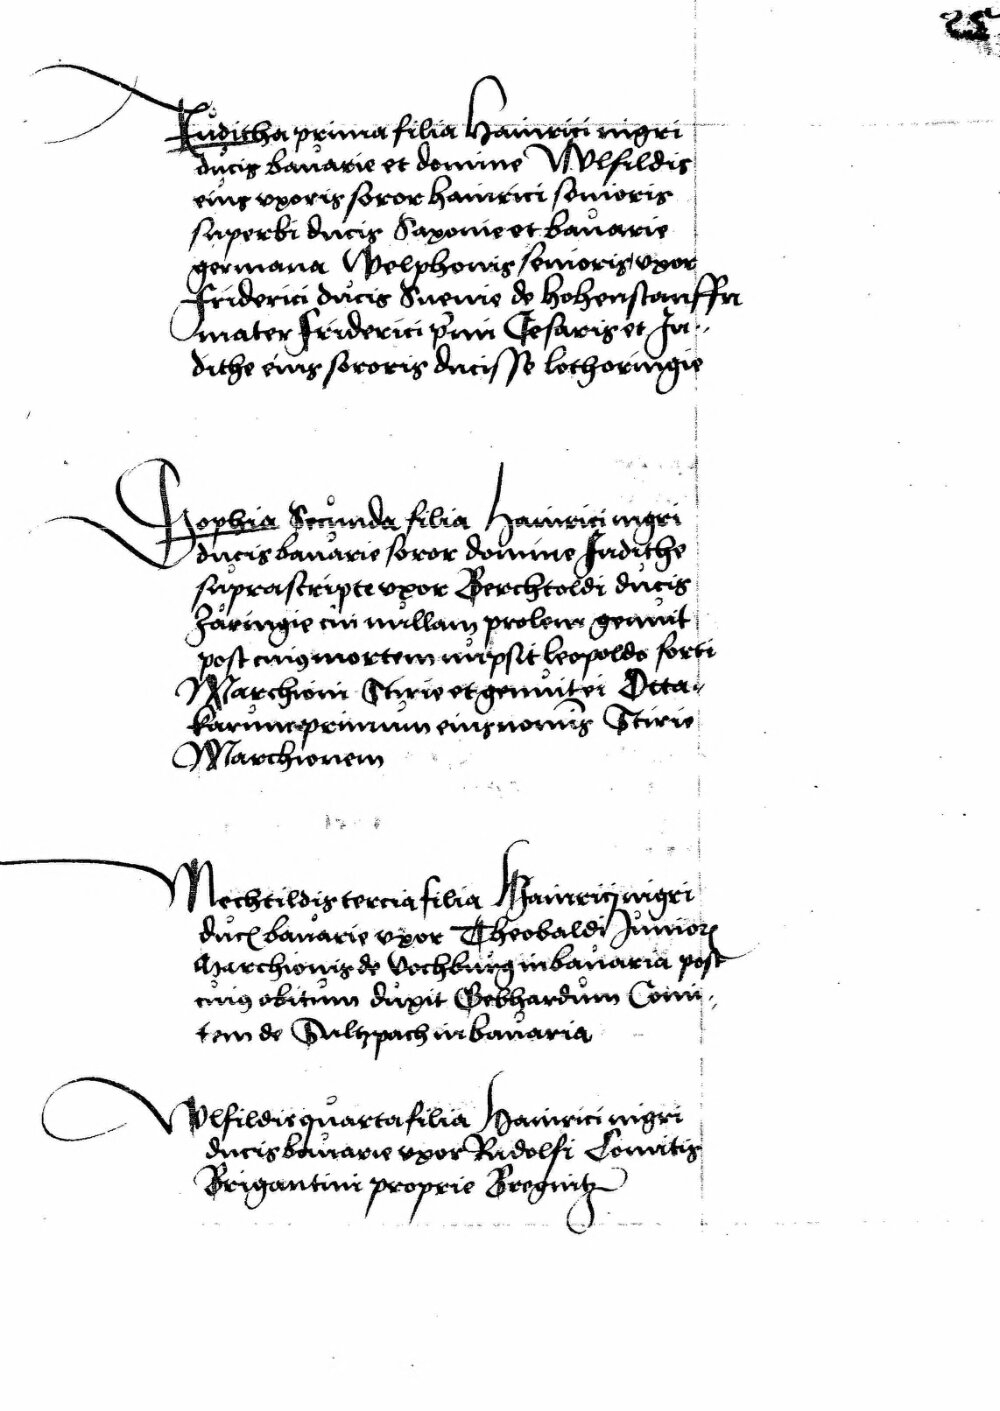 Juditha prima filia Hainrici nigri
ducis bavarie et domine Wlfildis
eius uxoris soror hainrici senioris
superbi ducis Saxonie et bavarie
germana Welphonis senioris uxor
friderici ducis Suevie de hohenstauffn
mater friderici p'mi Cesaris et Ju-
dithe eius sororis ducisse lothoringie
Sophia Secunda filia Hainrici nigri
ducis bavarie soror domine Judithe
suprascripte uxor Berchtoldi ducis
Zaringie cui nullam prolem genuit
post cuius mortem nupsit leopoldo forti
Marchioni Stirie et genuit ei Otta-
karum primum eius nominis Stirie
Marchionem
Mechtildis tercia filia Hainricj nigri
duc bavarie uxor Theobaldi Junior
Marchionis de Vochburg in bavaria post
cuius obitum duxit Gebhardum Comi-
tem de Sultzpach in bavaria
Wlfildis quarta filia Hainrici nigri
ducis bavarie uxor Rudolfi Comitis
Brigantini proprie Bregnitz